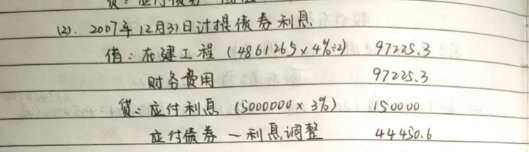 (2). 2007年12月31日计提债券利息
借：在建工程 (4861265×4%÷2) 97225.3
财务费用 97225.3
贷：应付利息 (5000000×3%) 150000
应付债券－利息调整 44450.6